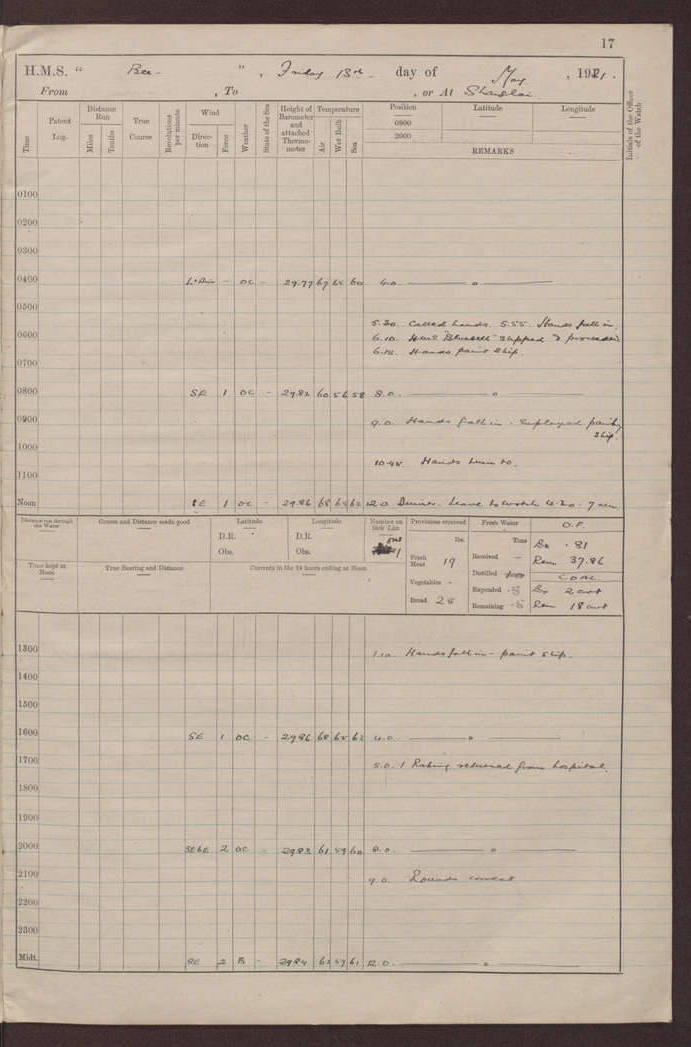 17
H.M.S. " Bee ", Friday 13th day of May, 1921.
From , To , or At Shanghai
Time
Patent Log.
Distance Run
Miles
Tenths
True Course
Revolutions per minute
Wind
Direction
Force
Weather
State of the Sea
Height of Barometer and attached Thermometer
Temperature
Air
Wet Bulb
Sea
Position
Latitude
Longitude
0800
2000
REMARKS
Initials of the Officer of the Watch
0100
0200
0300
0400 Lt Air - oc - 29.77 67 60 4.0. o
0500
5.30. Called hands. 5.55. Hands fall in.
0600 6.10. H.M.S. "Bluebell" slipped & proceeded
6.15. Hands paint ship.
0700
0800 SE 1 oc - 29.82 60 56 58 8.0. o
0900 9.0. Hands fall in. Employed painting ship.
1000
10.45. Hands turn to.
1100
Noon SE 1 oc - 29.86 12.0 Dinner. Leave to watch 4.30 - 7 am
Distance run through the Water
Course and Distance made good
Latitude
D.R.
Obs.
Longitude
D.R.
Obs.
Number on Sick List
one
1
Provisions received
lbs.
Fresh Meat 19
Vegetables -
Bread 28
Fresh Water
Tons
Received -
Distilled
Expended
Remaining
O.F.
Ex .81
Rem 37.86
COAL
Ex 2 cwt
Rem 18 cwt
Time kept at Noon
True Bearing and Distance
Currents in the 24 hours ending at Noon
1300 1.10. Hands fall in - paint ship.
1400
1500
1600 SE 1 oc - 29.86 68 4.0. o
1700 5.0. 1 Rating returned from hospital.
1800
1900
2000 SEbE 2 oc - 29.83 61 59 60 8.0. o
2100 9.0. Rounds correct
2200
2300
Midt. SE 2 B - 29.84 57 61 12.0. o